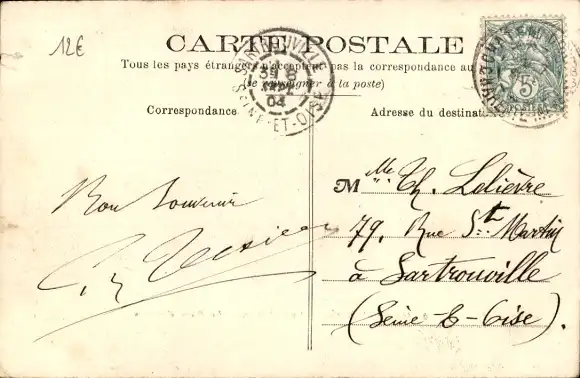 12€
CARTE POSTALE
Tous les pays étrangers n'acceptent pas la correspondance au
(se renseigner à la poste)
Correspondance
Adresse du destinat
SARTROUVILLE
SEINE-ET-OISE
04
5
Bon Souvenir
Mlle Th. Lelièvre
79, Rue St Martin
à Sartrouville
(Seine-&-Oise).